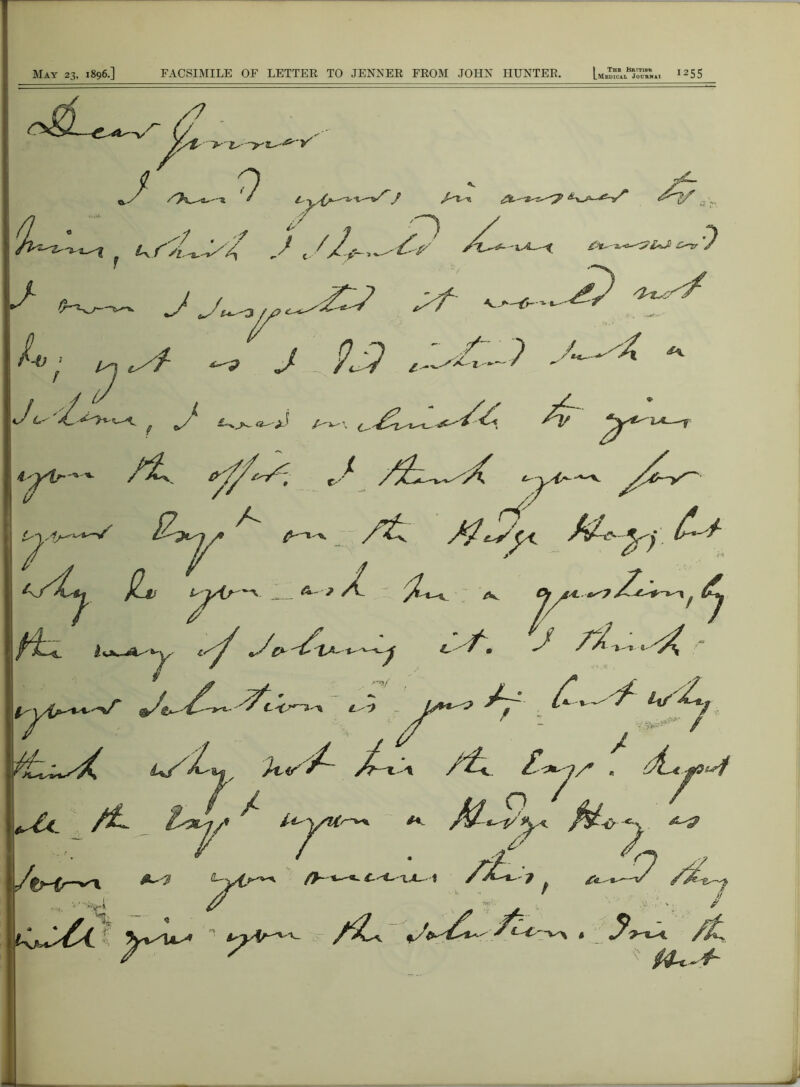 MAY 23, 1896.] FACSIMILE OF LETTER TO JENNER FROM JOHN HUNTER. [THE BRITISH MEDICAL JOURNAL 1255
Dear Jenner
I rec'd yours in answer to
mine, which I should have answer'd
I own I suspected it would not
do; yet as I did intend such a
scheme, I was inclinable to give
you the offer. I thank you for
your Expt on the Hedge Hog; but
why do you ask me a question, by
the way of solving it. I think
your solution is just; but why
think why not trie the Expt. Repeat
all the Expt upon a Hedge Hog as
soon as you receive this, and they
will give you the solution. Trie the
Heat